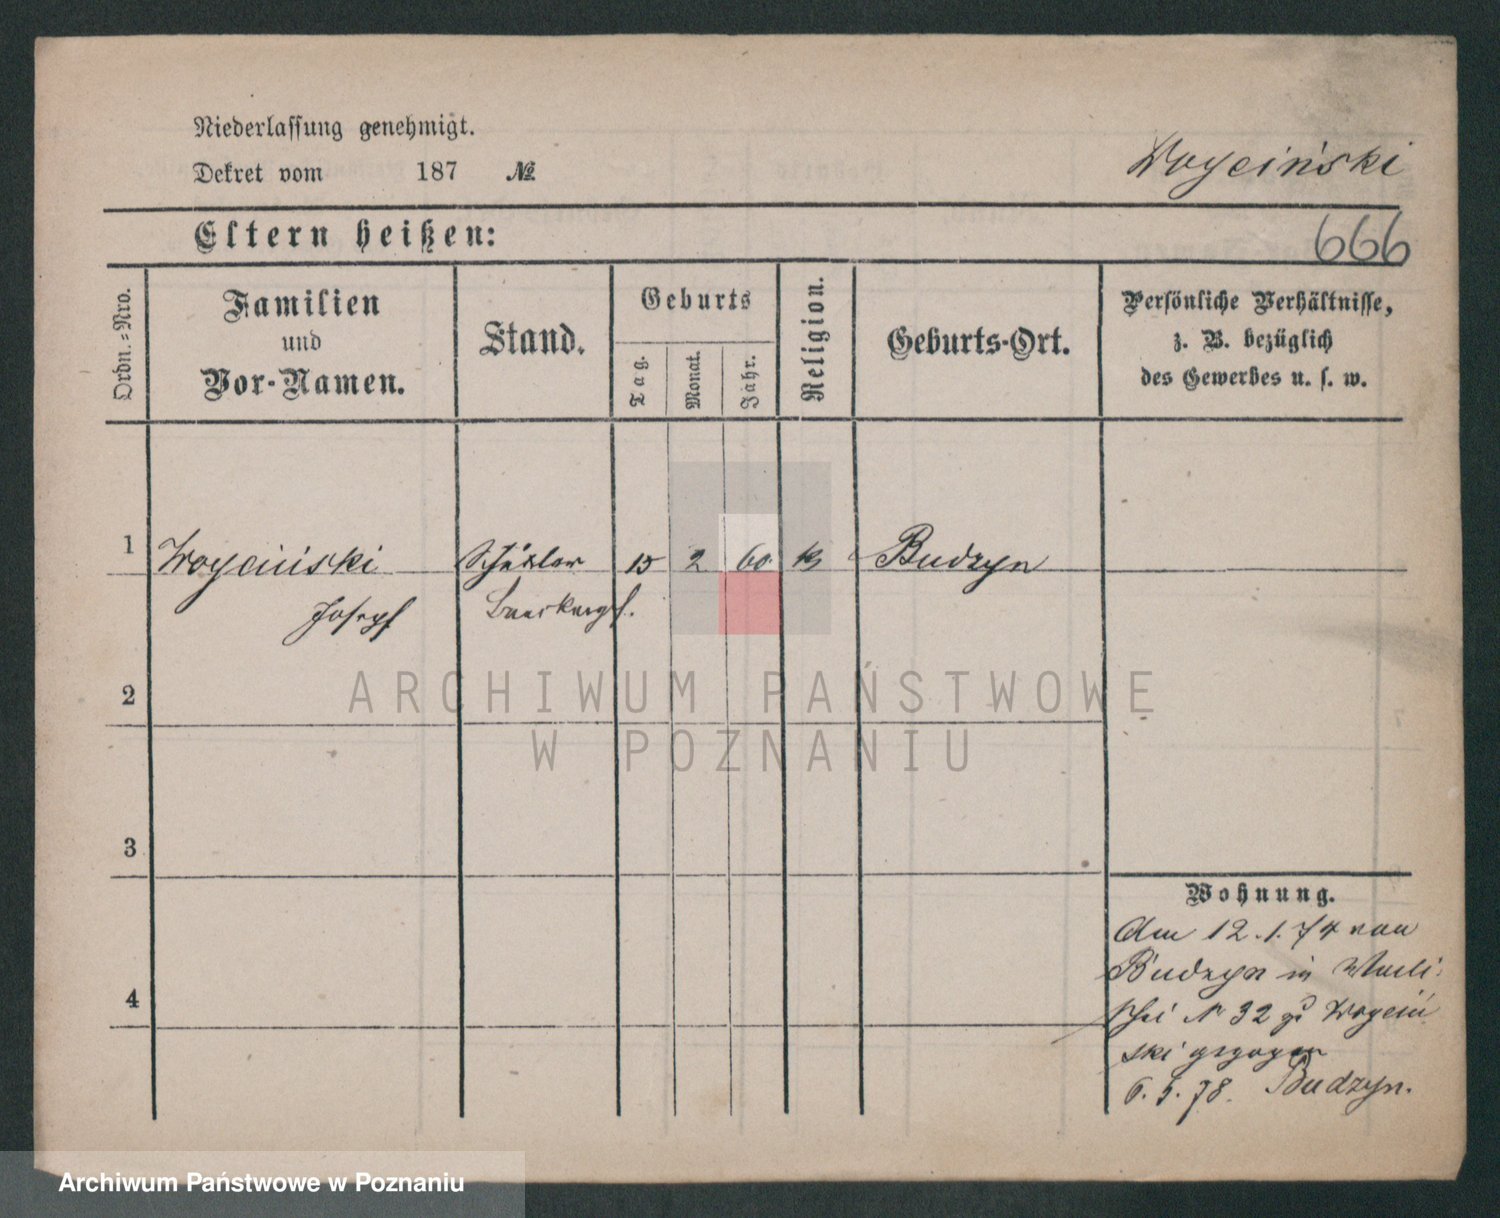 Niederlassung genehmigt.
Dekret vom 187 №
Woyciński
Eltern heißen:
666
Ordn.-Nro.
Familien
und
Vor-Namen.
Stand.
Geburts
Tag.
Monat.
Jahr.
Religion.
Geburts-Ort.
Persönliche Verhältnisse,
z. B. bezüglich
des Gewerbes u. s. w.
1 Woyciński Schüler 15 2 60 k Budzyn
Joseph
2
3
4
Wohnung.
Am 12.1.74 von
Budzyn in Walli
schei N 32 zu Woyciń
ski gezogen
6.5.78. Budzyn.
ARCHIWUM PAŃSTWOWE
W POZNANIU
Archiwum Państwowe w Poznaniu